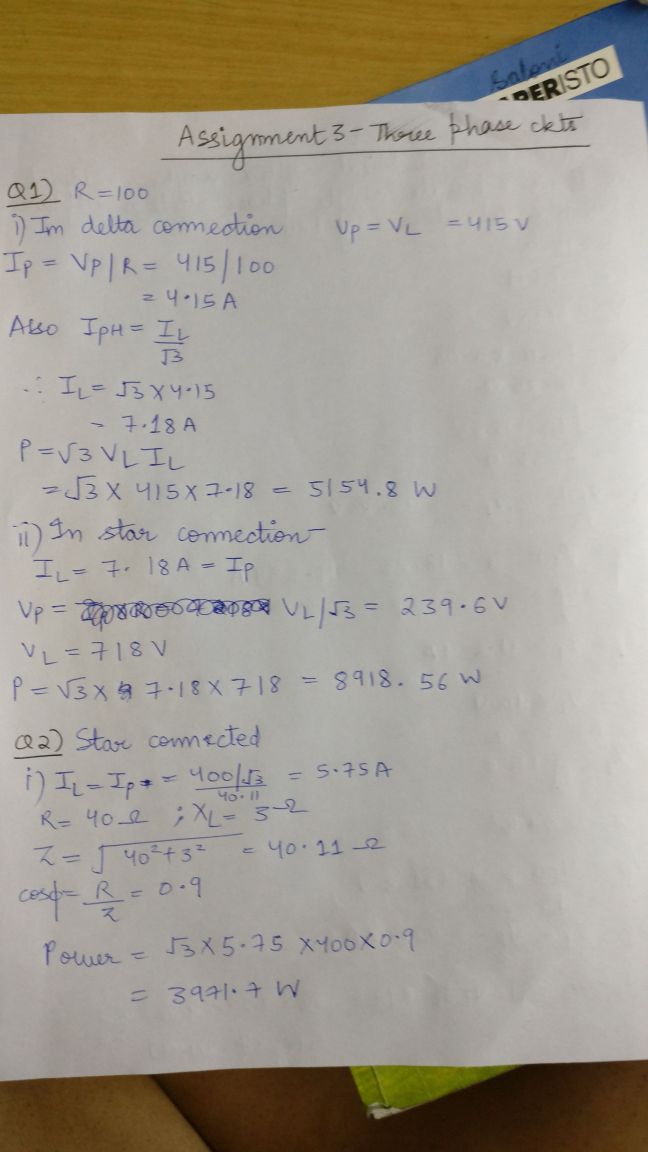 Saloni
PERISTO
Assignment 3 - Three phase ckts
Q1) R = 100
i) In delta connection Vp = VL = 415 V
Ip = Vp / R = 415/100
= 4.15 A
Also IPH = IL/√3
∴ IL = √3 × 4.15
= 7.18 A
P = √3 VL IL
= √3 × 415 × 7.18 = 5154.8 W
ii) In star connection -
IL = 7.18 A = Ip
Vp = VL/√3 = 239.6 V
VL = 718 V
P = √3 × 7.18 × 718 = 8918.56 W
Q2) Star connected
i) IL = Ip = 400/√3 / 40.11 = 5.75 A
R = 40 Ω ; XL = 3 Ω
Z = √40² + 3² = 40.11 Ω
cosϕ = R/Z = 0.9
Power = √3 × 5.75 × 400 × 0.9
= 3971.7 W